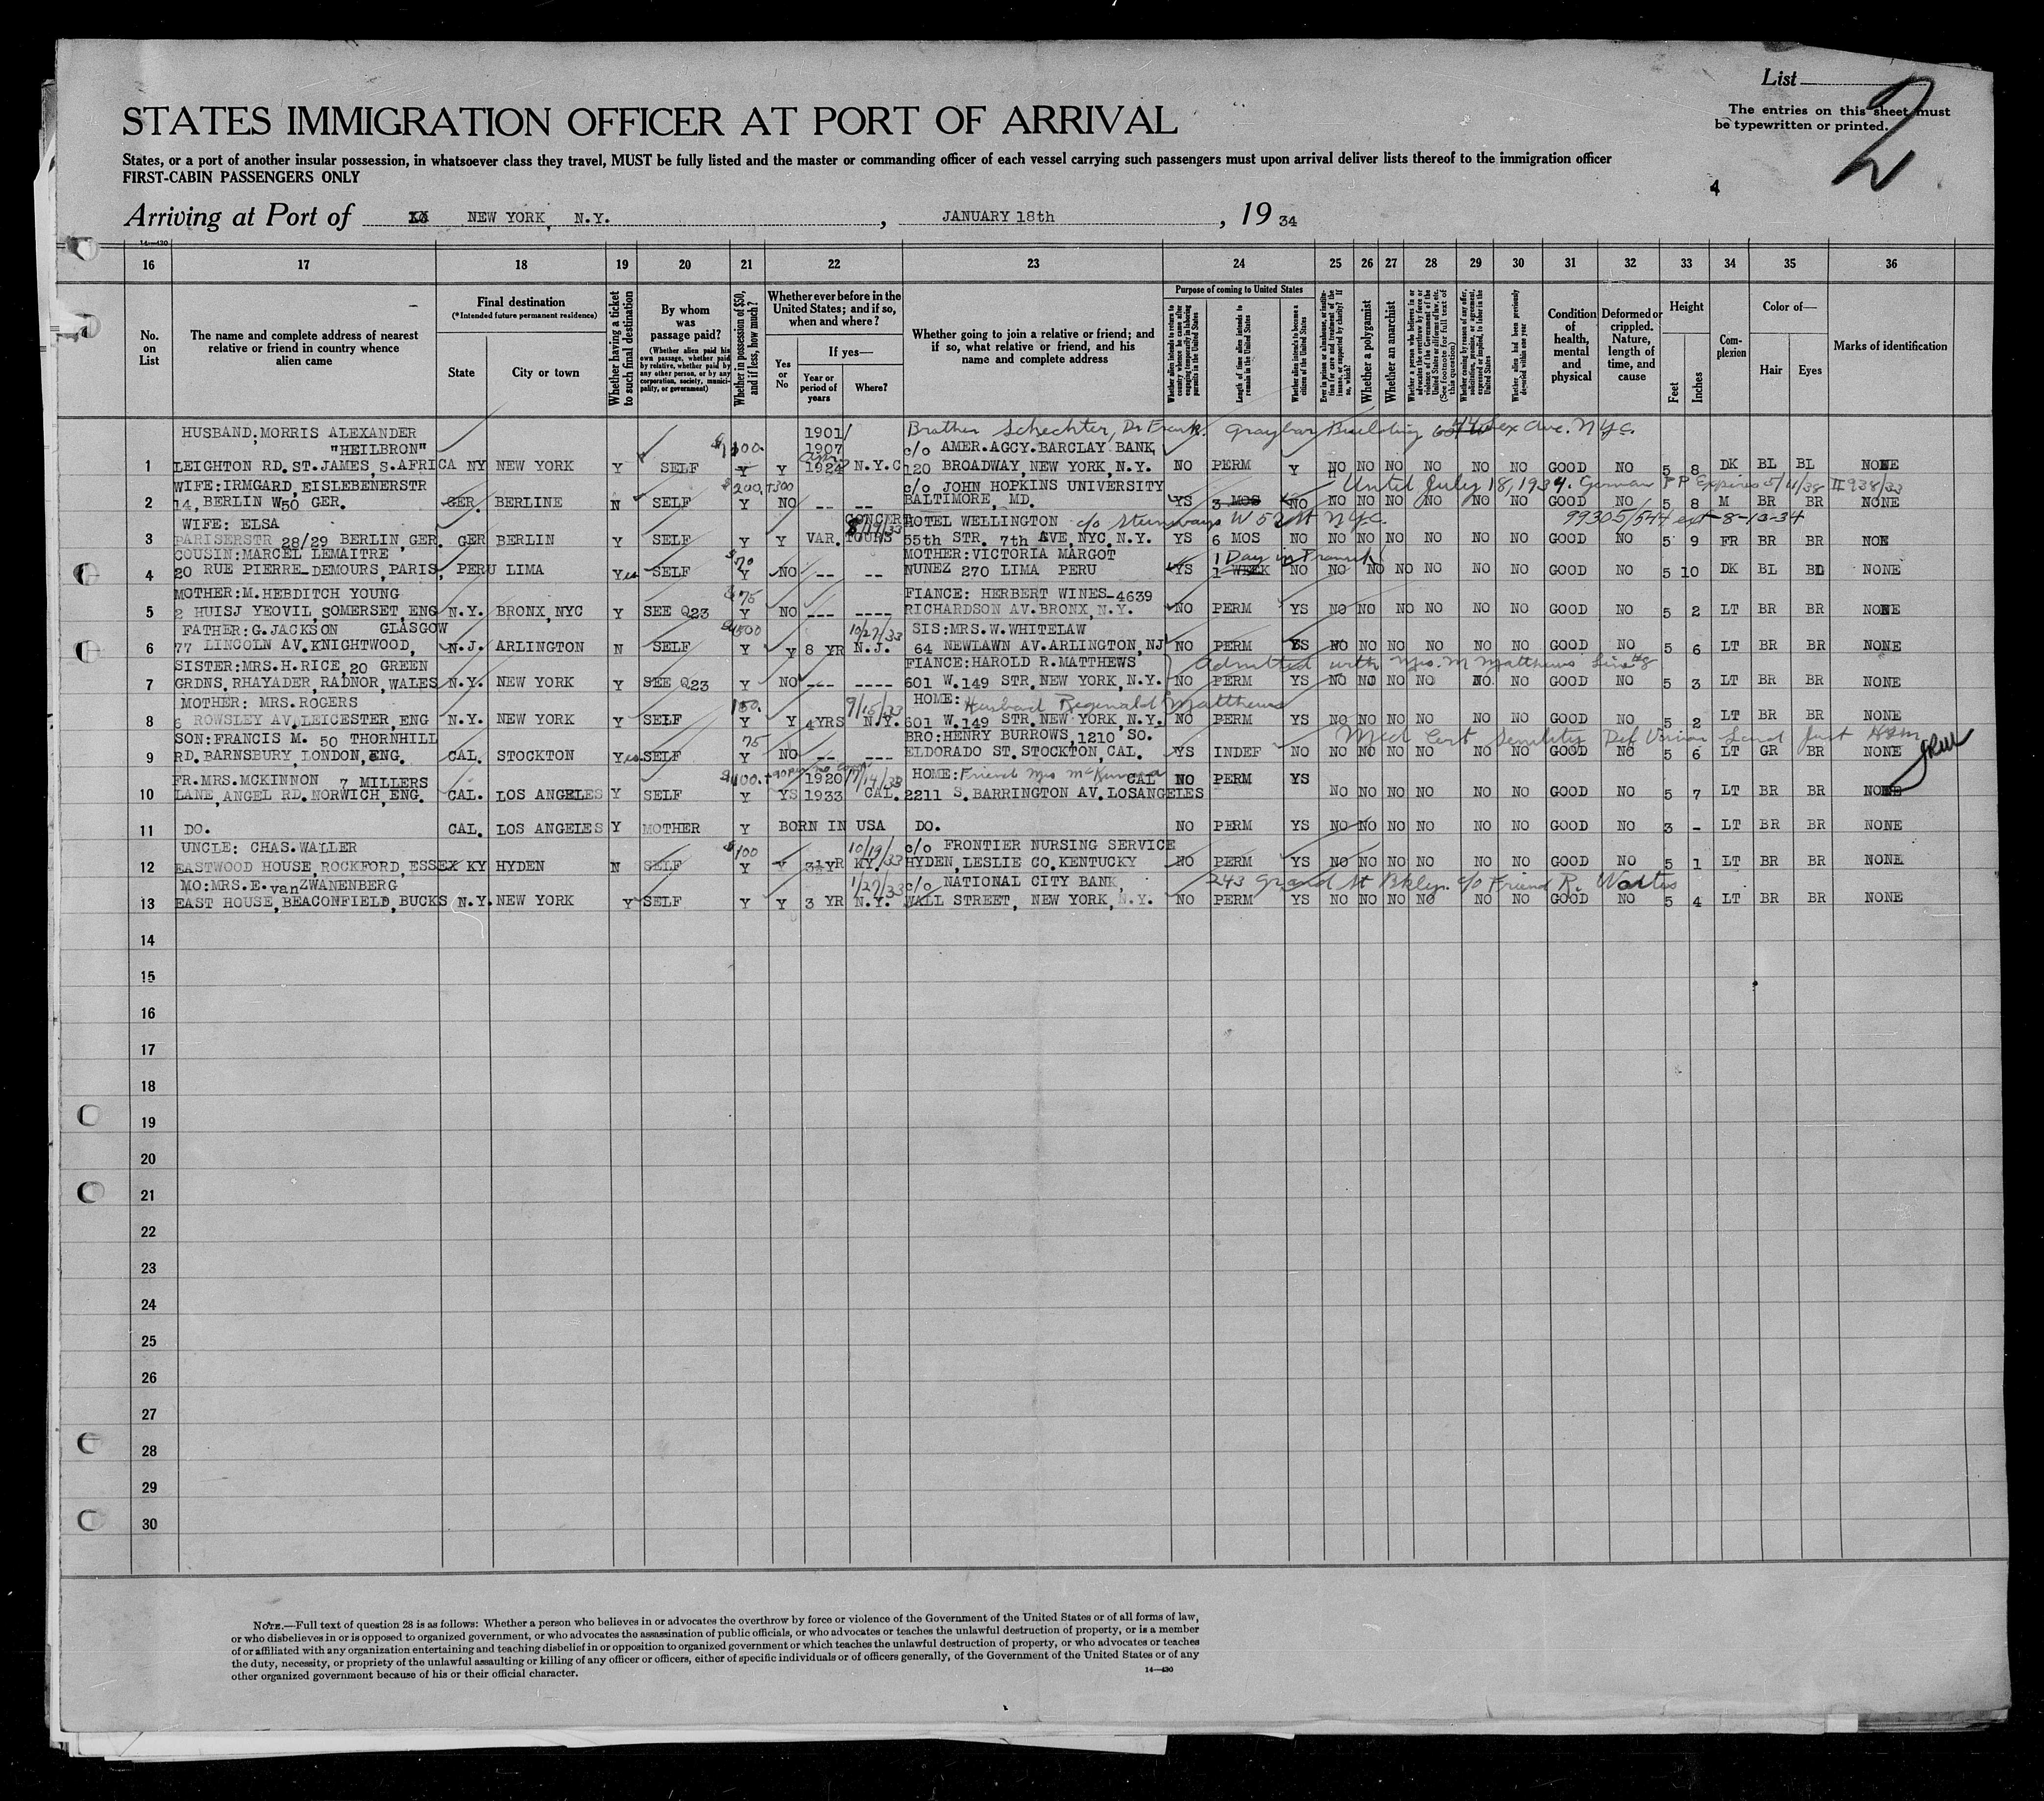 List
The entries on this sheet must
be typewritten or printed.
2
4
STATES IMMIGRATION OFFICER AT PORT OF ARRIVAL
States, or a port of another insular possession, in whatsoever class they travel, MUST be fully listed and the master or commanding officer of each vessel carrying such passengers must upon arrival deliver lists thereof to the immigration officer
FIRST-CABIN PASSENGERS ONLY
Arriving at Port of NEW YORK, N.Y., JANUARY 18th, 19 34
14—430
16 17 18 19 20 21 22 23 24 25 26 27 28 29 30 31 32 33 34 35 36
No. on List
The name and complete address of nearest relative or friend in country whence alien came
Final destination
(*Intended future permanent residence)
State
City or town
Whether having a ticket to such final destination
By whom was passage paid?
(Whether alien paid his own passage, whether paid by relative, whether paid by any other person, or by any corporation, society, municipality, or government)
Whether in possession of $50, and if less, how much?
Whether ever before in the United States; and if so, when and where?
Yes or No
If yes—
Year or period of years
Where?
Whether going to join a relative or friend; and if so, what relative or friend, and his name and complete address
Purpose of coming to United States
Length of time alien intends to remain in the United States
Whether alien intends to become a citizen of the United States
Whether a polygamist
Whether an anarchist
Condition of health, mental and physical
Deformed or crippled. Nature, length of time, and cause
Height
Feet
Inches
Complexion
Color of—
Hair
Eyes
Marks of identification
HUSBAND, MORRIS ALEXANDER 1901/ Brother Schechter, Dr Frank. Graybar Building Lex Ave. NYC.
"HEILBRON" 1907 c/o AMER.AGCY.BARCLAY BANK,
1 LEIGHTON RD.ST.JAMES,S.AFRICA NY NEW YORK Y SELF Y Y 1924 N.Y.C 120 BROADWAY,NEW YORK,N.Y. NO PERM Y NO NO NO NO NO NO GOOD NO 5 8 DK BL BL NONE
WIFE:IRMGARD,EISLEBENERSTR $200. c/o JOHN HOPKINS UNIVERSITY Until July 18, 1934. German PP Expires 5/4/38 II 938/33
2 14, BERLIN W50 GER. GER. BERLINE N SELF Y NO -- -- BALTIMORE, MD. YS 3 MOS NO NO NO NO NO NO NO GOOD NO 5 8 M BR BR NONE
WIFE: ELSA CONCERT HOTEL WELLINGTON c/o Steinways W 52 St NYC. 99305/544 ext-8-13-34
3 PARISERSTR 28/29 BERLIN,GER. GER BERLIN Y SELF Y Y VAR. TOURS 55th STR. 7th AVE,NYC,N.Y. YS 6 MOS NO NO NO NO NO NO NO GOOD NO 5 9 FR BR BR NONE
COUSIN:MARCEL LEMAITRE $70 MOTHER:VICTORIA MARGOT 1 Day in Transit
4 20 RUE PIERRE-DEMOURS,PARIS, PERU LIMA Yes SELF NO -- -- NUNEZ 270 LIMA PERU YS 1 WEEK NO NO NO NO NO NO NO GOOD NO 5 10 DK BL BL NONE
MOTHER:M.HEBDITCH YOUNG $75 FIANCE: HERBERT WINES-4639
5 2 HUISJ YEOVIL,SOMERSET,ENG N.Y. BRONX,NYC Y SEE Q23 Y NO --- ---- RICHARDSON AV.BRONX,N.Y. NO PERM YS NO NO NO NO NO NO GOOD NO 5 2 LT BR BR NONE
FATHER:G.JACKSON GLASGOW 10/27/33 SIS:MRS.W.WHITELAW
6 77 LINCOLN AV.KNIGHTWOOD, N.J. ARLINGTON N SELF Y Y 8 YR N.J. 64 NEWLAWN AV.ARLINGTON,NJ NO PERM YS NO NO NO NO NO NO GOOD NO 5 6 LT BR BR NONE
SISTER:MRS.H.RICE,20 GREEN FIANCE:HAROLD R.MATTHEWS Admitted with Mrs. M Matthews Line #8
7 GRDNS.RHAYADER,RADNOR,WALES N.Y. NEW YORK Y SEE Q23 Y NO --- ---- 601 W.149 STR.NEW YORK,N.Y. NO PERM YS NO NO NO NO NO NO GOOD NO 5 3 LT BR BR NONE
MOTHER: MRS.ROGERS 150. 9/15/33 HOME: Husband Reginald Matthews
8 6 ROWSLEY AV.LEICESTER,ENG N.Y. NEW YORK Y SELF Y Y 4YRS N.Y. 601 W.149 STR.NEW YORK N.Y. NO PERM YS NO NO NO NO NO NO GOOD NO 5 2 LT BR BR NONE
SON:FRANCIS M. 50 THORNHILL 75 BRO:HENRY BURROWS,1210 SO. Med Cert Senility Def Vision
9 RD.BARNSBURY,LONDON,ENG. CAL. STOCKTON Yes SELF Y NO -- --- ELDORADO ST.STOCKTON,CAL. YS INDEF NO NO NO NO NO NO NO GOOD NO 5 6 LT GR BR NONE
FR.MRS.MCKINNON 7 MILLERS $400. 1920 HOME: Friend Mrs McKinnon CAL NO PERM YS
10 LANE,ANGEL RD.NORWICH,ENG. CAL. LOS ANGELES Y SELF Y YS 1933 CAL. 2211 S.BARRINGTON AV.LOSANGELES NO NO NO NO NO NO GOOD NO 5 7 LT BR BR NONE
11 DO. CAL. LOS ANGELES Y MOTHER Y BORN IN USA DO. NO PERM YS NO NO NO NO NO NO GOOD NO 3 - LT BR BR NONE
UNCLE: CHAS.WALLER $100 10/19/33 c/o FRONTIER NURSING SERVICE
12 EASTWOOD HOUSE,ROCKFORD,ESSEX KY HYDEN N SELF Y Y 3½YR KY. HYDEN,LESLIE CO.KENTUCKY NO PERM YS NO NO NO NO NO NO GOOD NO 5 1 LT BR BR NONE
MO:MRS.E.vanZWANENBERG 1/27/33 c/o NATIONAL CITY BANK, 243 Grand St Bklyn. c/o Friend R.
13 EAST HOUSE,BEACONFIELD,BUCKS N.Y. NEW YORK Y SELF Y Y 3 YR N.Y. WALL STREET, NEW YORK,N.Y. NO PERM YS NO NO NO NO NO NO GOOD NO 5 4 LT BR BR NONE
14
15
16
17
18
19
20
21
22
23
24
25
26
27
28
29
30
NOTE.—Full text of question 28 is as follows: Whether a person who believes in or advocates the overthrow by force or violence of the Government of the United States or of all forms of law,
or who disbelieves in or is opposed to organized government, or who advocates the assassination of public officials, or who advocates or teaches the unlawful destruction of property, or is a member
of or affiliated with any organization entertaining and teaching disbelief in or opposition to organized government or which teaches the unlawful destruction of property, or who advocates or teaches
the duty, necessity, or propriety of the unlawful assaulting or killing of any officer or officers, either of specific individuals or of officers generally, of the Government of the United States or of any
other organized government because of his or their official character.
14—430